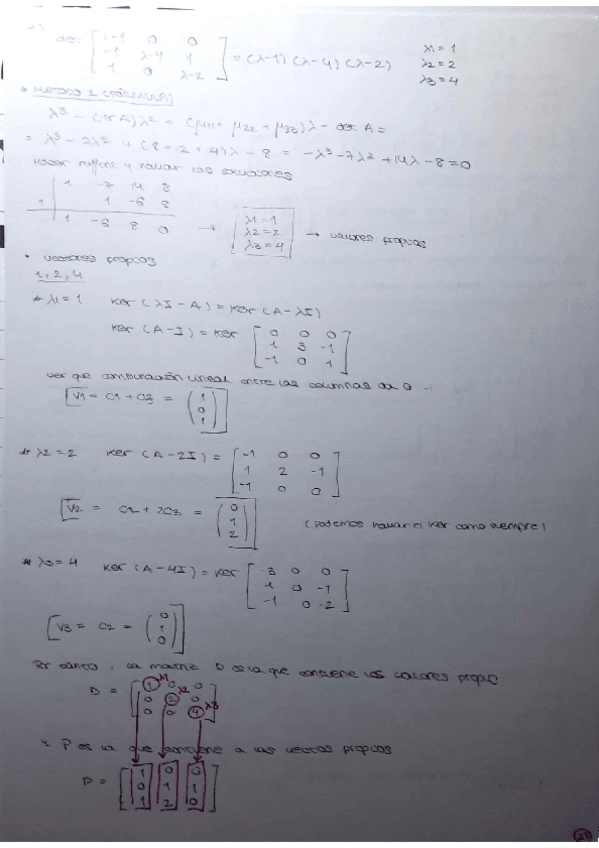 det [ λ-1 0 0 ; -1 λ-4 1 ; 1 0 λ-2 ] = (λ-1) (λ-4) (λ-2) λ1 = 1 λ2 = 2 λ3 = 4
λ³ - (tr A) λ² + (μ11 + μ22 + μ33) λ - det A =
= λ³ - 2λ² + (8 + 2 + 4) λ - 8 = -λ³ - 7λ² + 14λ - 8 = 0
Hacer ruffini y hallar las soluciones
1 -7 14 8
1 1 -6 8
1 -6 8 0 → [ λ1 = 1 λ2 = 2 λ3 = 4 ] → valores propios
• vectores propios
1, 2, 4
* λ1 = 1 Ker (λI - A) = Ker (A - λI)
Ker (A - I) = Ker [ 0 0 0 ; 1 3 -1 ; -1 0 1 ]
ver que combinación lineal entre las columnas da 0
V1 = C1 + C3 = ( 1 0 1 )
* λ2 = 2 Ker (A - 2I) = [ -1 0 0 ; 1 2 -1 ; -1 0 0 ]
V2 = C2 + 2C3 = ( 0 1 2 ) (Podemos hallar el Ker como siempre)
* λ3 = 4 Ker (A - 4I) = Ker [ -3 0 0 ; 1 0 -1 ; -1 0 -2 ]
V3 = C2 = ( 0 1 0 )
Por tanto, la matriz D es la que contiene los valores propios
D = [ 1 0 0 ; 0 2 0 ; 0 0 4 ] λ1 λ2 λ3
y P es la que contiene a los vectores propios
P = [ 1 0 0 ; 0 1 1 ; 1 2 0 ]